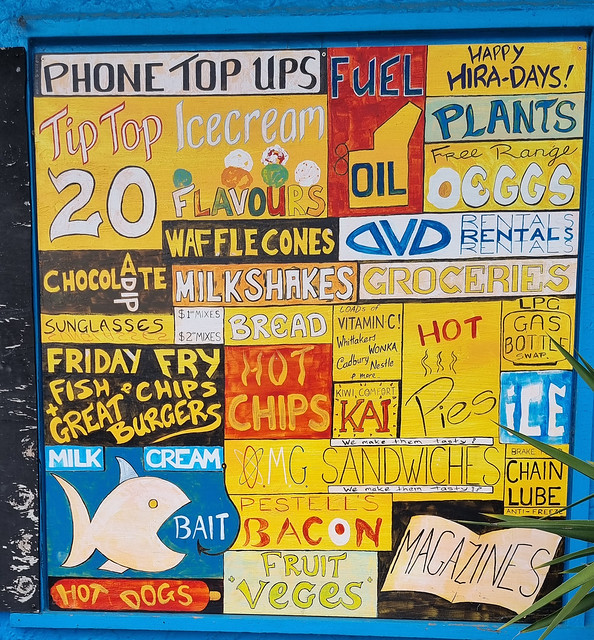 PHONE TOP UPS
FUEL
HAPPY
HIRA-DAYS!
Tip Top Icecream
20 FLAVOURS
OIL
PLANTS
Free Range
EGGS
WAFFLE CONES
DVD
RENTALS
RENTALS
RENTALS
CHOCOLATE
DIP
MILKSHAKES
GROCERIES
SUNGLASSES
$1 MIXES
$2 MIXES
BREAD
LOADS of
VITAMIN C!
Whittakers
WONKA
Cadbury Nestle
& more
HOT
Pies
LPG
GAS
BOTTLE
SWAP
FRIDAY FRY
FISH & CHIPS
+ GREAT
BURGERS
HOT
CHIPS
KIWI COMFORT
KAI
ICE
We make them tasty!
MILK
CREAM
O.M.G. SANDWICHES
We make them tasty!
BRAKE
CHAIN
LUBE
ANTI-FREEZE
BAIT
PESTELL'S
BACON
MAGAZINES
FRUIT
VEGES
HOT DOGS